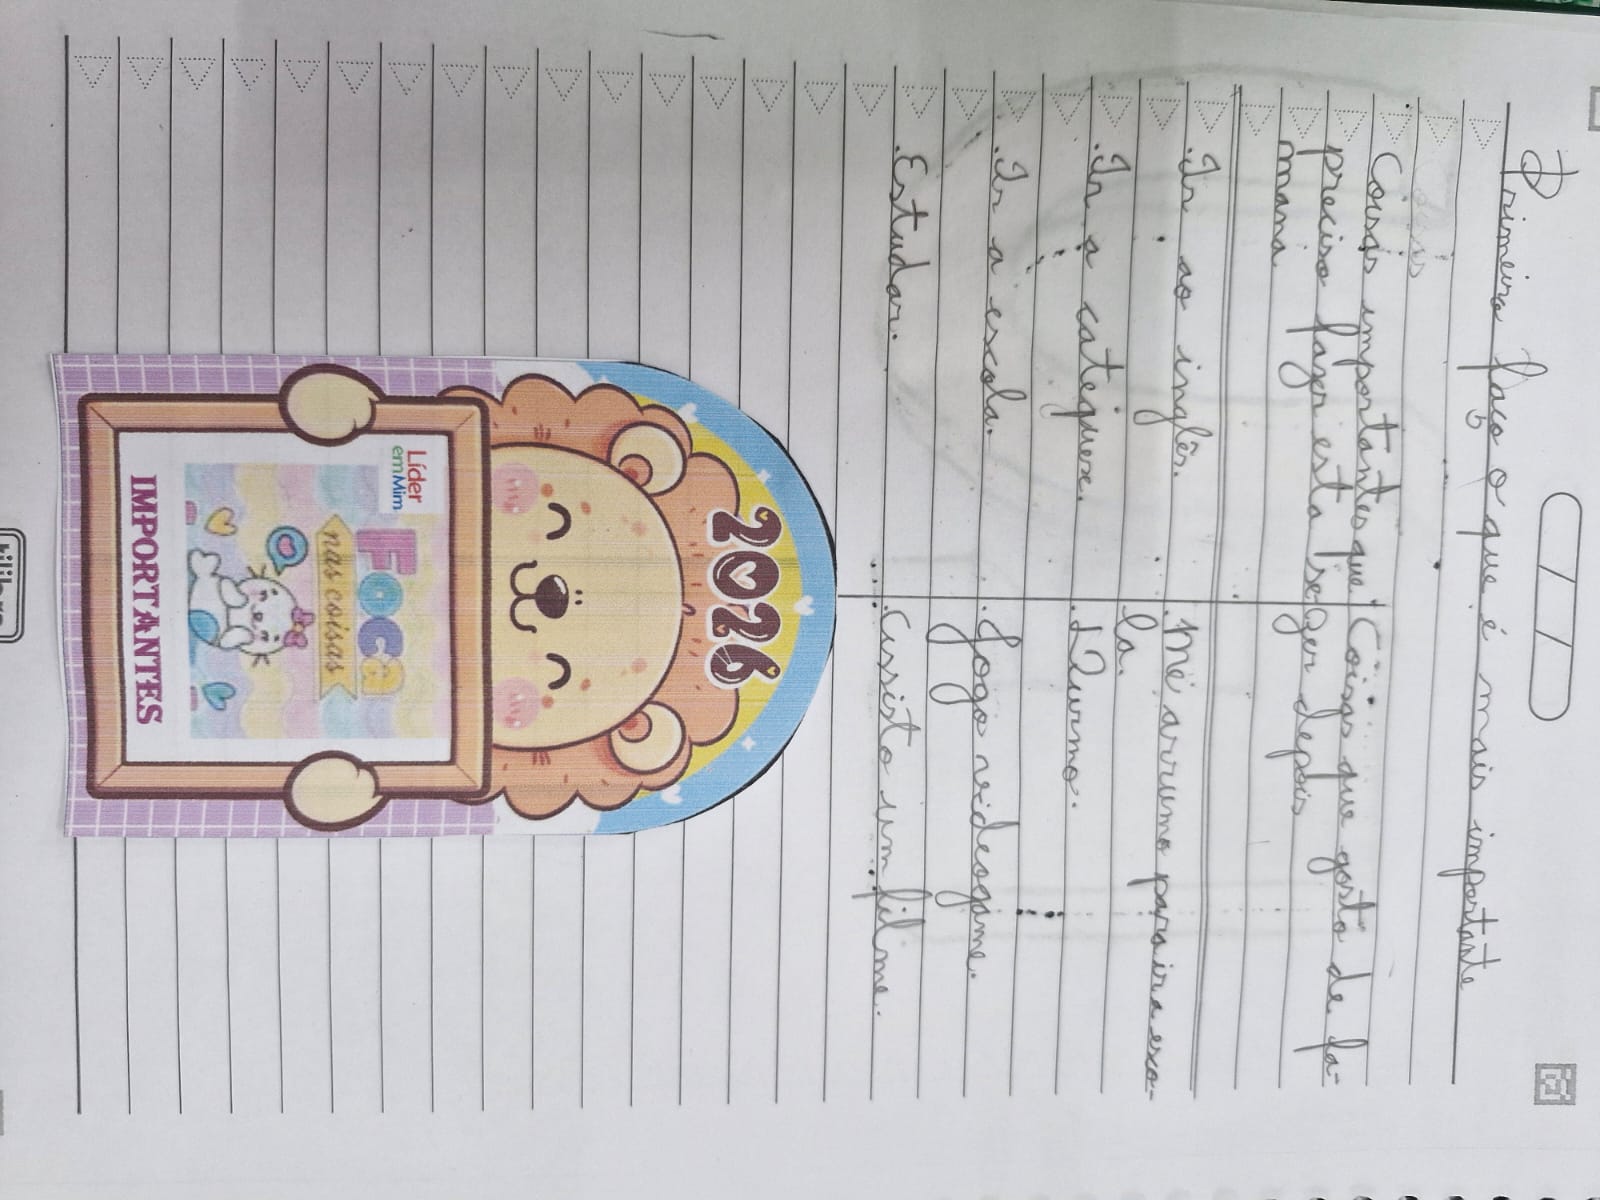 / /
Primeiro faço o que é mais importante
Coisas importantes que
preciso fazer esta se-
mana
Coisas que gosto de fa-
zer depois
.Ir ao inglês.
.Ir a catequese.
.Ir a escola.
.Estudar.
.Me arrumo para ir a esco-
la.
.Durmo.
.Jogo videogame.
.Assisto um filme.
2026
Líder
em Mim
FOCA
nas coisas
IMPORTANTES
tilibra